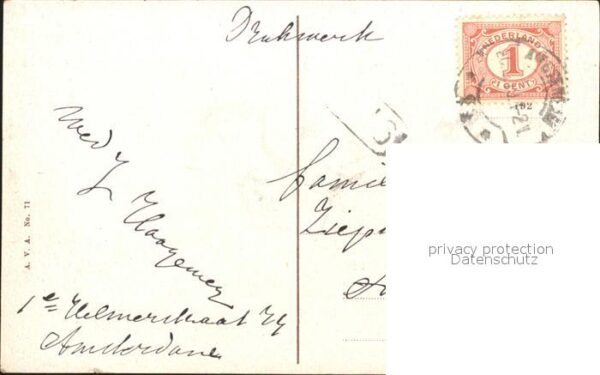 Drukwerk
NEDERLAND
1
(1 CENT)
wed
Z Haagemeij
1e Helmerstraat 74
Amsterdam
A. V. A. No. 71
Famil
Ziep
privacy protection
Datenschutz